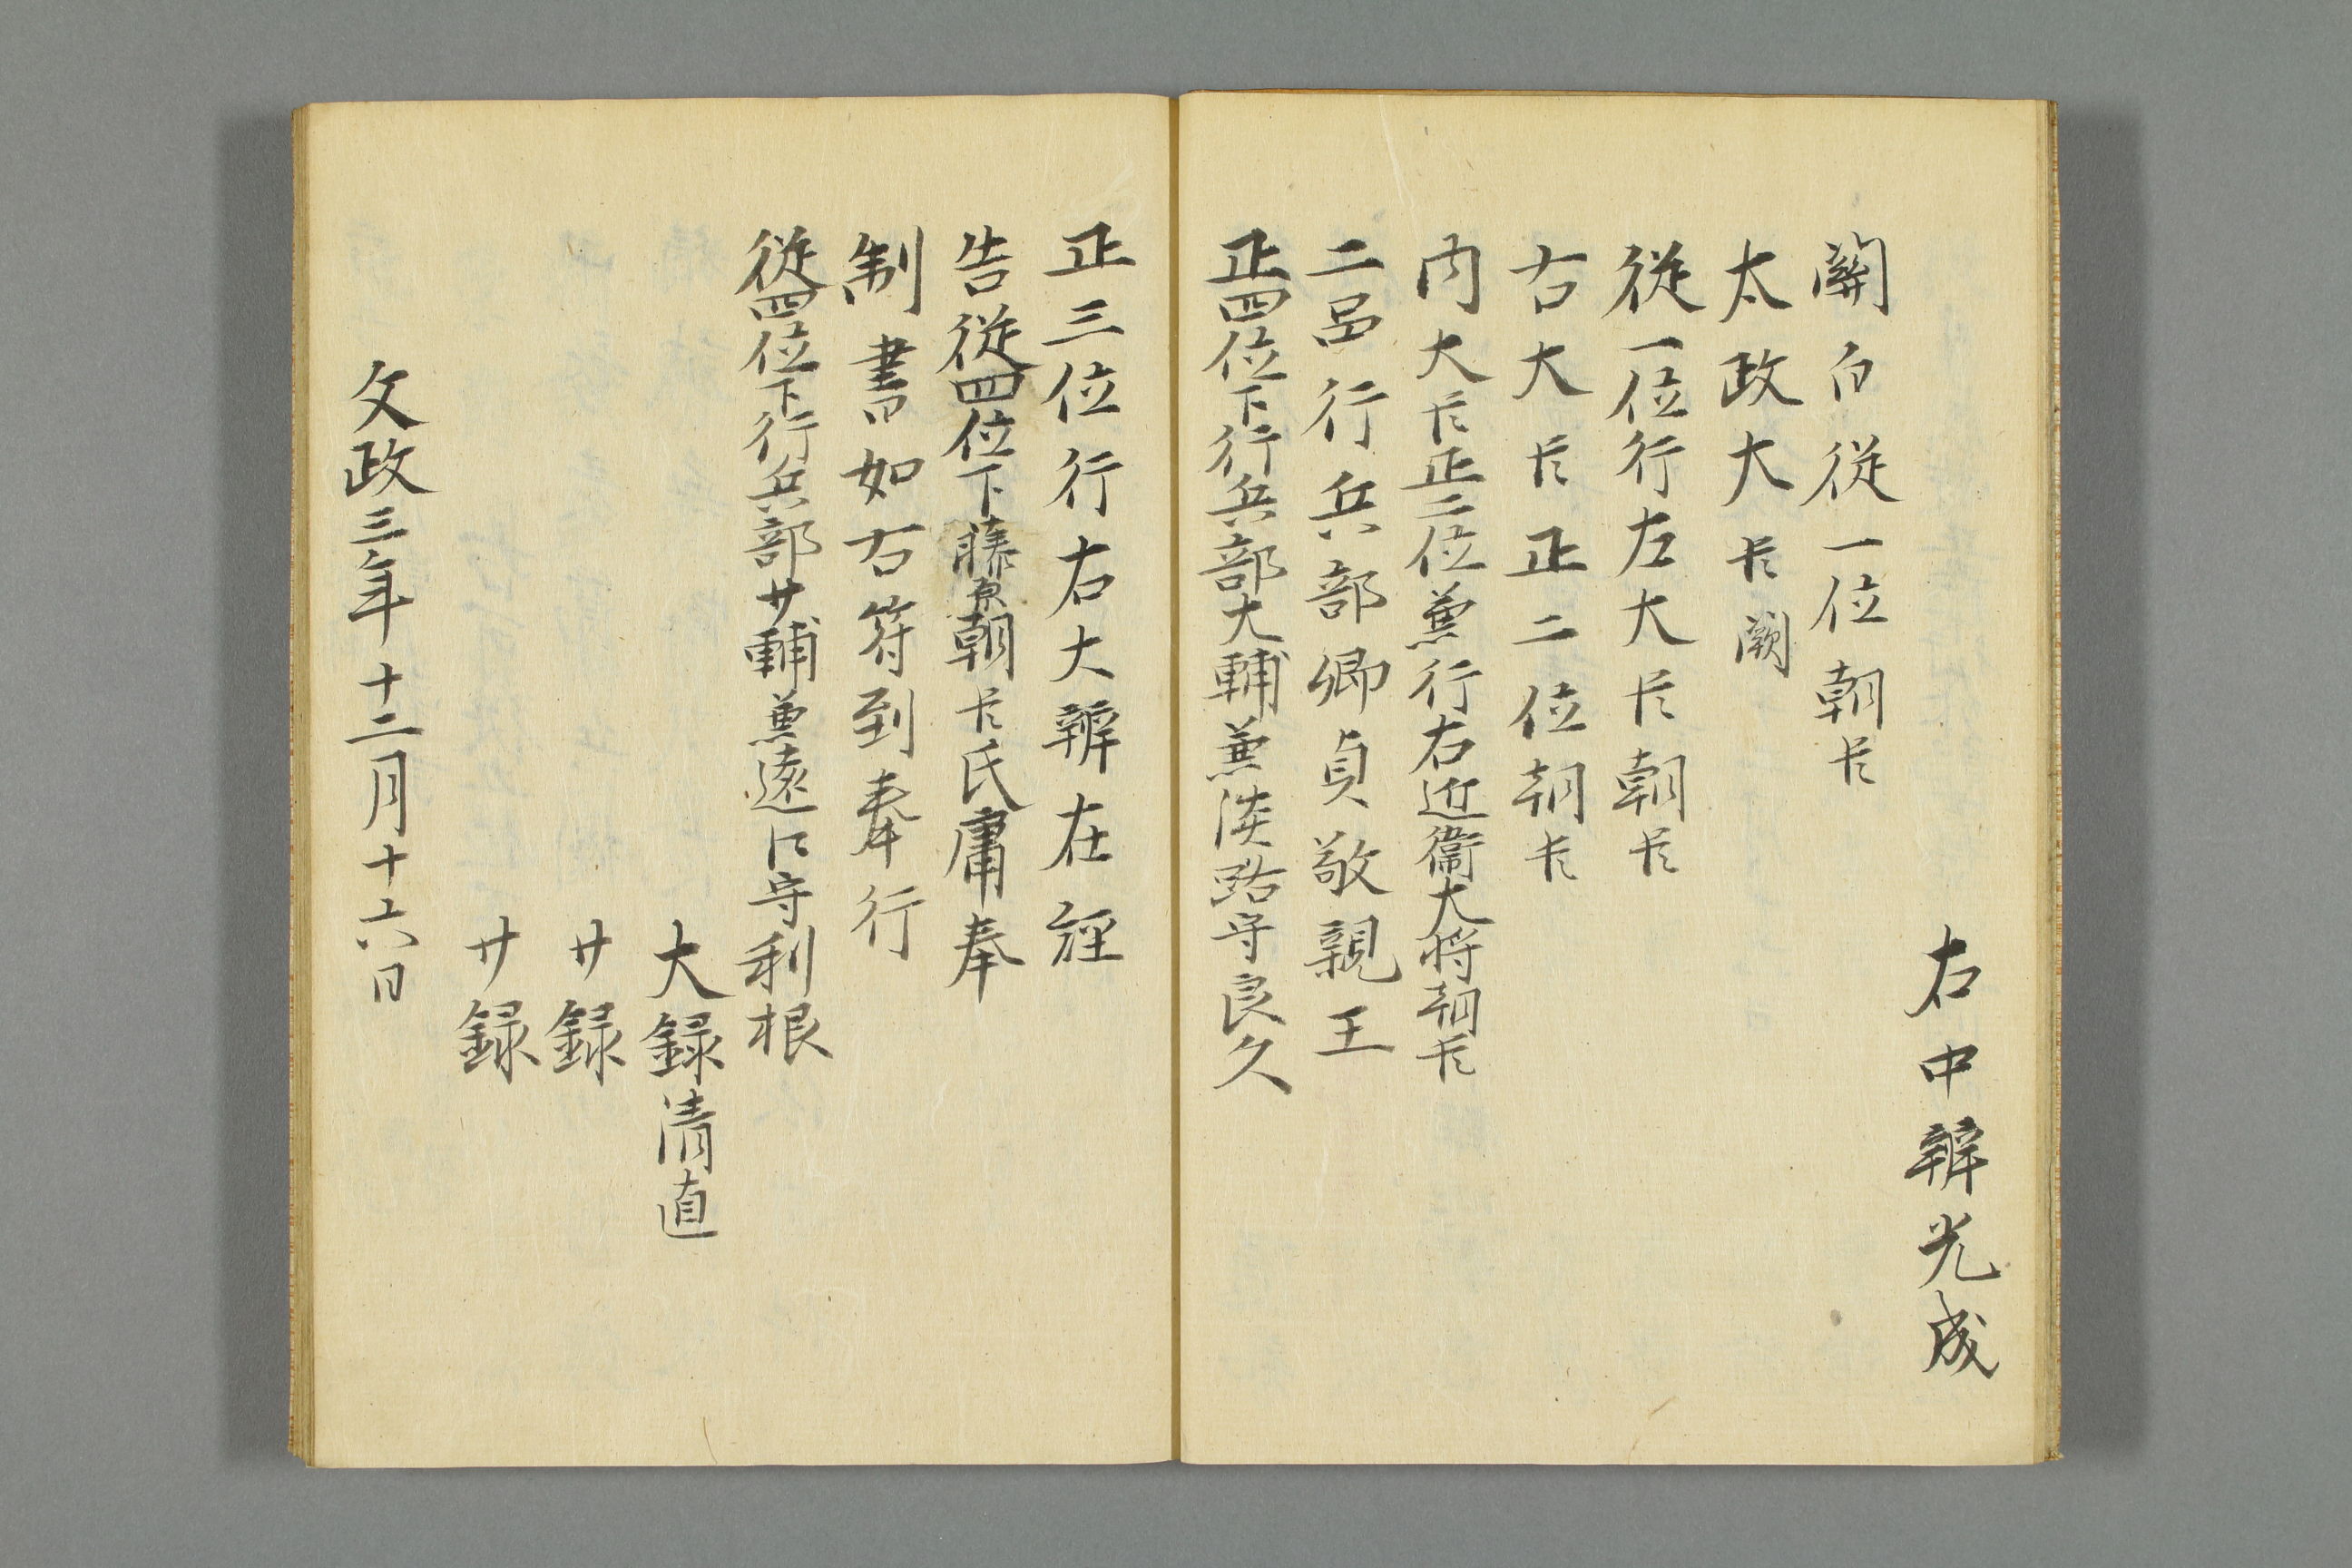 右中辨光成
關白従一位朝臣
太政大臣闕
従一位行左大臣朝臣
右大臣正二位朝臣
内大臣正二位兼行右近衛大将朝臣
二品行兵部卿貞敬親王
正四位下行兵部大輔兼淡路守良久
正三位行右大辨在經
告従四位下藤原朝臣氏庸奉
制書如右符到奉行
従四位下行兵部少輔兼遠江守利根
大録清直
少録
少録
文政三年十二月十六日